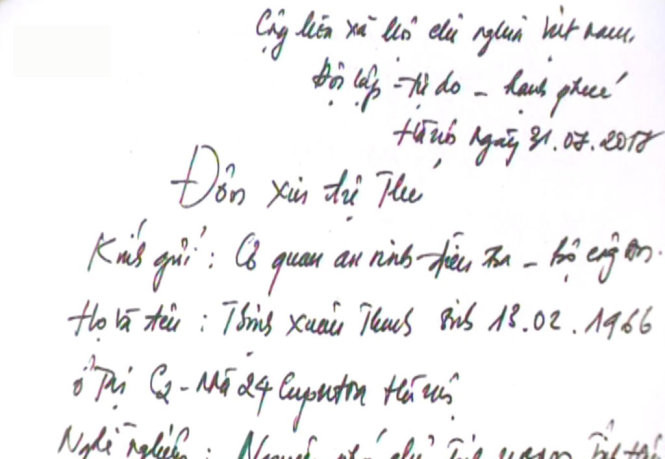 Cộng hòa xã hội chủ nghĩa Việt nam.
Độc lập - Tự do - hạnh phúc
Hà nội ngày 31.07.2017
Đơn xin tự Thú
Kính gửi : Cơ quan an ninh điều tra - bộ công an.
Họ và tên : Trịnh Xuân Thanh sinh 13.02.1966
ở Tại C2 - Nhà 24 Hà nội
Nghề nghiệp : Nguyên phó chủ Tịch